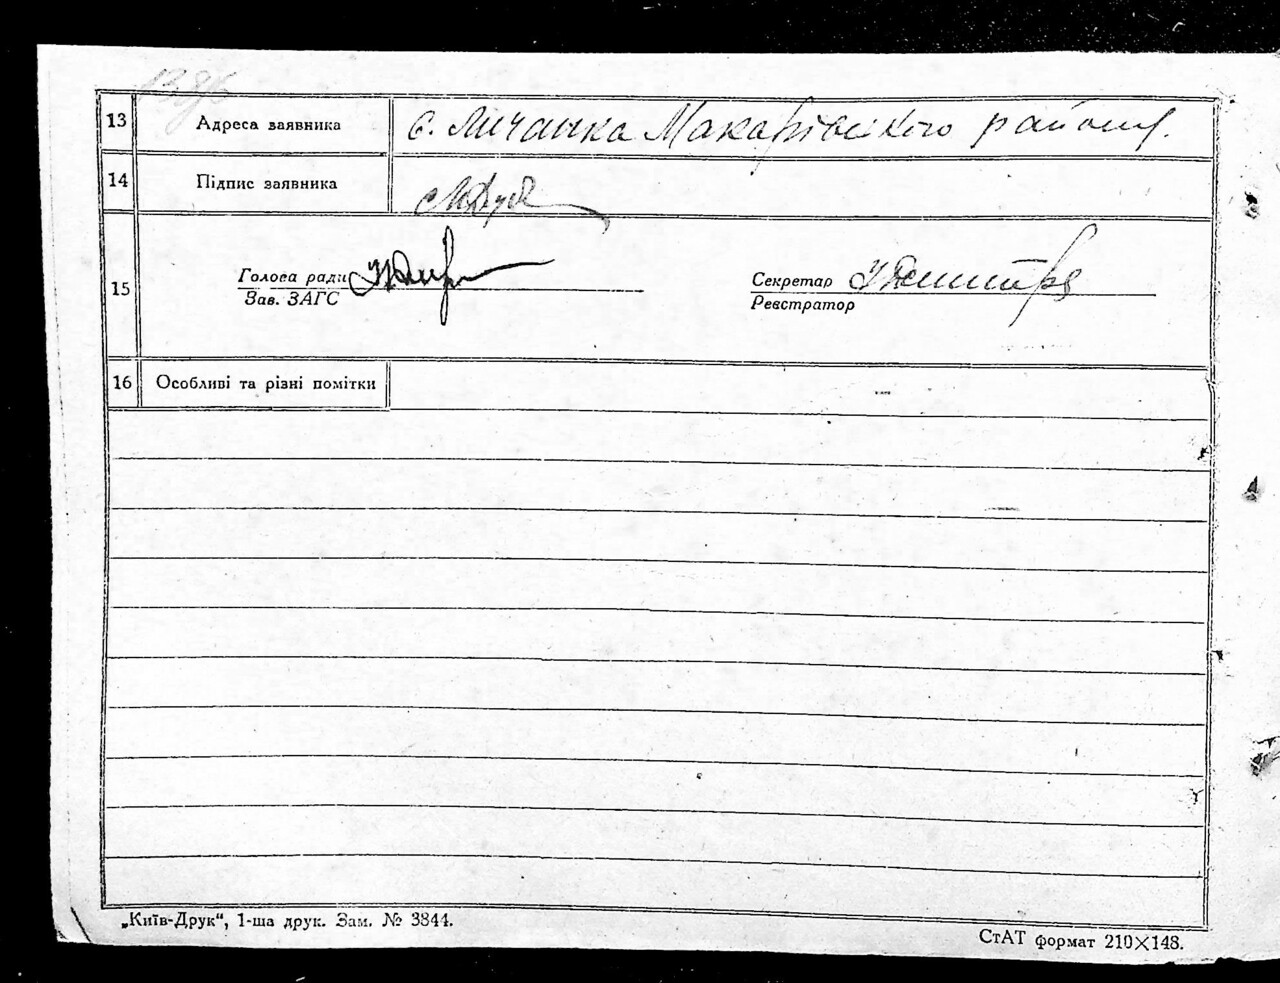 1386
13 Адреса заявника с. Личанка Макарівського району.
14 Підпис заявника
15 Голова ради Секретар
Зав. ЗАГС Реєстратор
16 Особливі та різні помітки —
„Київ-Друк“, 1-ша друк. Зам. № 3844.
СтАТ формат 210×148.